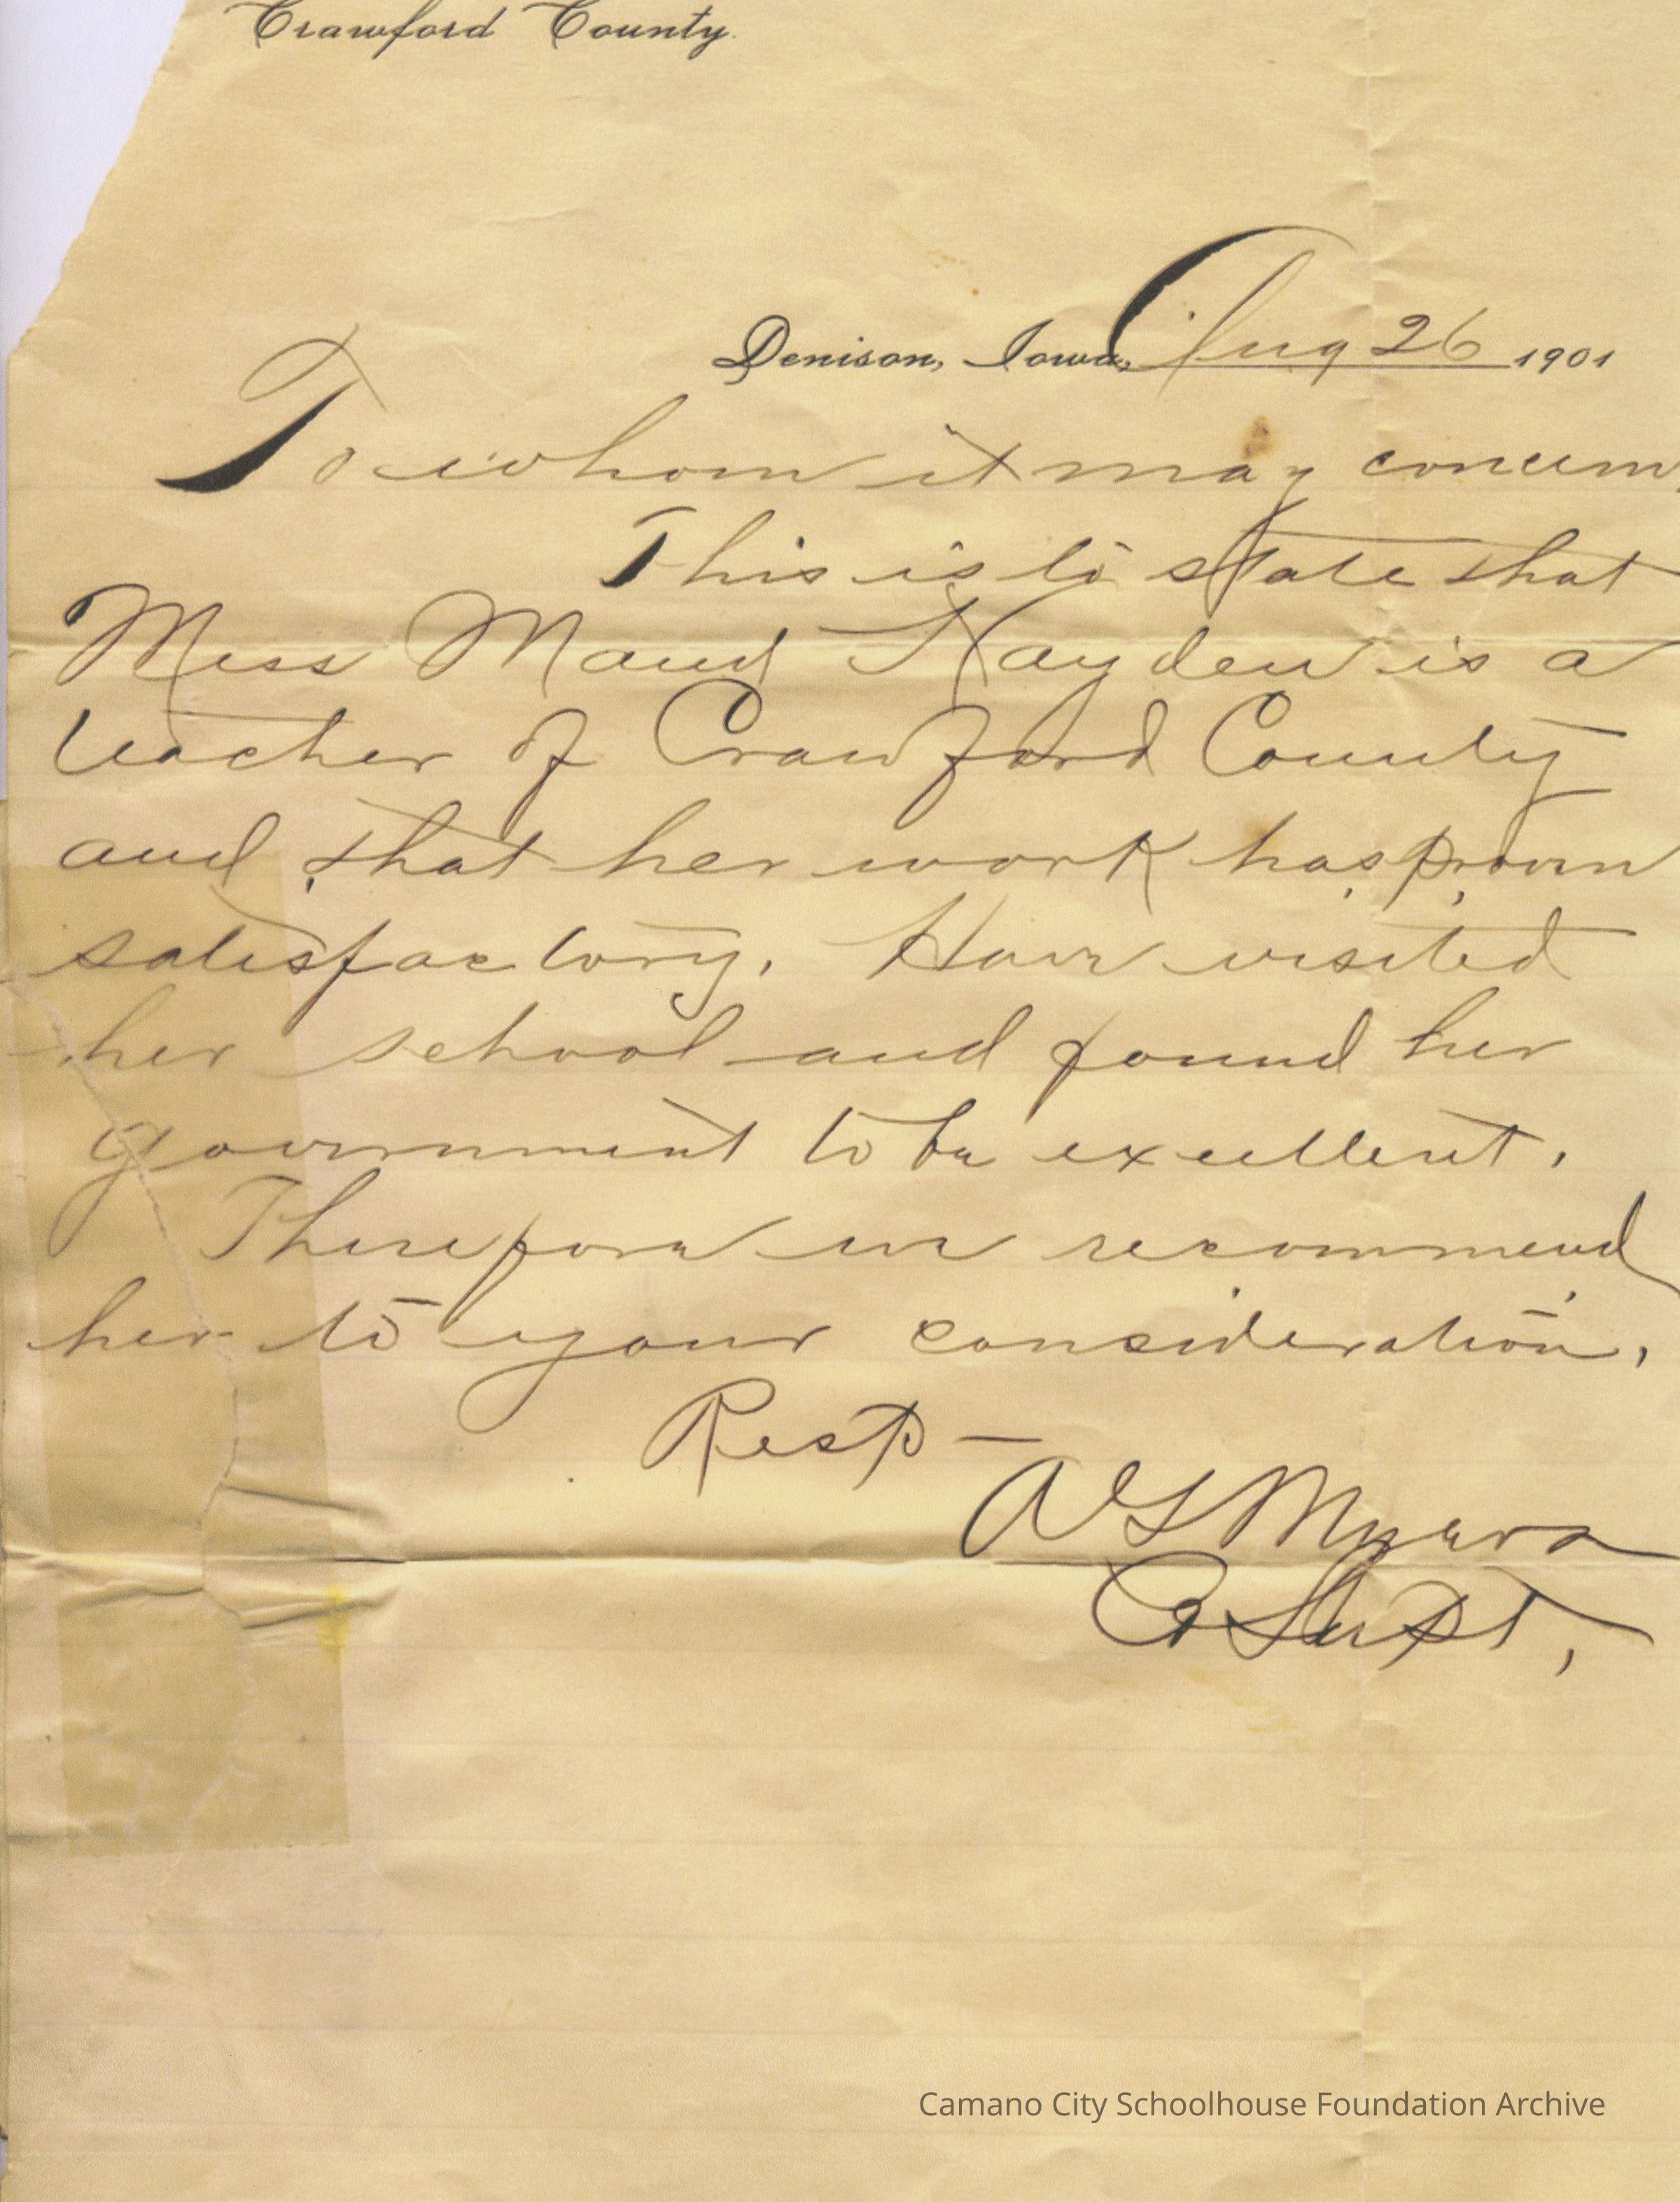 Crawford County.
Denison, Iowa, Aug 26 1901
To whom it may concern,
This is to state that
Miss Maud Hayden is a
teacher of Crawford County
and that her work has proven
satisfactory. Have visited
her school and found her
government to be excellent.
Therefore we recommend
her to your consideration.
Resp —
A G Myers
Co Supt.
Camano City Schoolhouse Foundation Archive